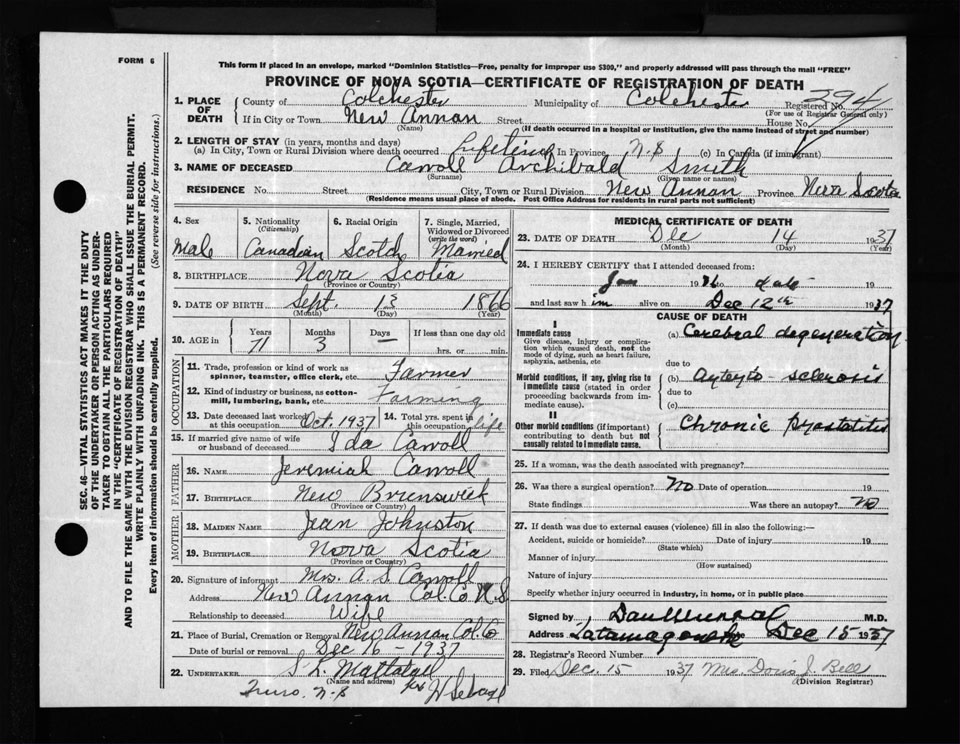 FORM 6
This form if placed in an envelope, marked "Dominion Statistics—Free, penalty for improper use $300," and properly addressed will pass through the mail "FREE"
PROVINCE OF NOVA SCOTIA—CERTIFICATE OF REGISTRATION OF DEATH
SEC. 46—VITAL STATISTICS ACT MAKES IT THE DUTY
OF THE UNDERTAKER OR PERSON ACTING AS UNDER-
TAKER TO OBTAIN ALL THE PARTICULARS REQUIRED
IN THE "CERTIFICATE OF REGISTRATION OF DEATH"
AND TO FILE THE SAME WITH THE DIVISION REGISTRAR WHO SHALL ISSUE THE BURIAL PERMIT.
WRITE PLAINLY WITH UNFADING INK. THIS IS A PERMANENT RECORD.
Every item of information should be carefully supplied. (See reverse side for instructions.)
1. PLACE OF DEATH County of Colchester Municipality of Colchester Registered No. 394
(For use of Registrar General only)
If in City or Town New Annan Street House No.
(Name) (If death occurred in a hospital or institution, give the name instead of street and number)
2. LENGTH OF STAY (in years, months and days)
(a) In City, Town or Rural Division where death occurred Lifetime In Province N.S (c) In Canada (if immigrant)
3. NAME OF DECEASED Carroll Archibald Smith
(Surname) (Given name or names)
RESIDENCE No. Street City, Town or Rural Division New Annan Province Nova Scotia
(Residence means usual place of abode. Post Office Address for residents in rural parts not sufficient)
4. Sex 5. Nationality (Citizenship) 6. Racial Origin 7. Single, Married, Widowed or Divorced (write the word)
Male Canadian Scotch Married
8. BIRTHPLACE Nova Scotia
(Province or Country)
9. DATE OF BIRTH Sept. 13 1866
(Month) (Day) (Year)
10. AGE in Years Months Days If less than one day old
71 3 — hrs. or min.
OCCUPATION
11. Trade, profession or kind of work as spinner, teamster, office clerk, etc. Farmer
12. Kind of industry or business, as cotton-mill, lumbering, bank, etc. Farming
13. Date deceased last worked at this occupation Oct. 1937 14. Total yrs. spent in this occupation life
15. If married give name of wife or husband of deceased Ida Carroll
FATHER
16. NAME Jeremiah Carroll
17. BIRTHPLACE New Brunswick
(Province or Country)
MOTHER
18. MAIDEN NAME Jean Johnston
19. BIRTHPLACE Nova Scotia
(Province or Country)
20. Signature of informant Mrs. A. S. Carroll
Address New Annan Col. Co N.S
Relationship to deceased Wife
21. Place of Burial, Cremation or Removal New Annan Col. Co
Date of burial or removal Dec 16 – 1937
22. UNDERTAKER
(Name and address)
Truro. N.S
MEDICAL CERTIFICATE OF DEATH
23. DATE OF DEATH Dec 14 1937
(Month) (Day) (Year)
24. I HEREBY CERTIFY that I attended deceased from:
Jan 1936 to date 19
and last saw him alive on Dec 12th 1937
CAUSE OF DEATH
I
Immediate cause (a) Cerebral degeneration
Give disease, injury or complication which caused death, not the mode of dying, such as heart failure, asphyxia, asthenia, etc
due to
Morbid conditions, if any, giving rise to immediate cause (stated in order proceeding backwards from immediate cause). (b) sclerosis
due to
(c)
II
Other morbid conditions (if important) contributing to death but not causally related to immediate cause. Chronic Prostatitis
25. If a woman, was the death associated with pregnancy?
26. Was there a surgical operation? No Date of operation 19
State findings Was there an autopsy? No
27. If death was due to external causes (violence) fill in also the following:—
Accident, suicide or homicide? Date of injury 19
(State which)
Manner of injury
(How sustained)
Nature of injury
Specify whether injury occurred in Industry, in home, or in public place
Signed by M.D.
Address Tatamagouche Date Dec 15 1937
28. Registrar's Record Number
29. Filed Dec. 15 1937 Mrs. Doris J. Bell
(Division Registrar)